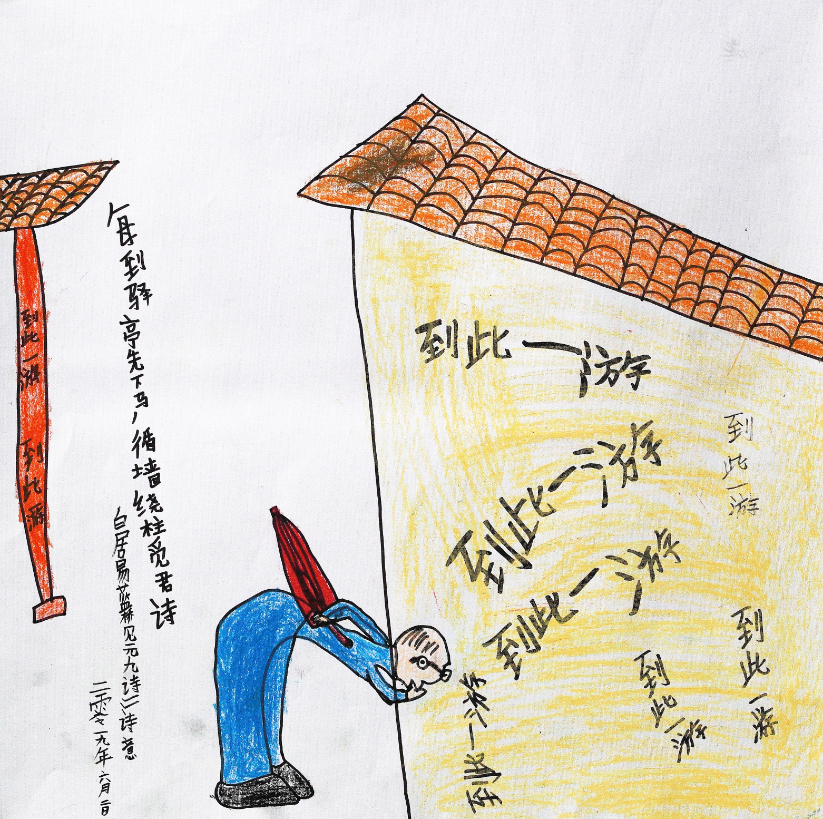 到此一游
到此一游
到此一游
到此一游
到此一游
到此一游
到此一游
每到驿亭先下马，循墙绕柱觅君诗
白居易《蓝见元九诗》诗意
二零一九年六月二日
到此一游
到此一游